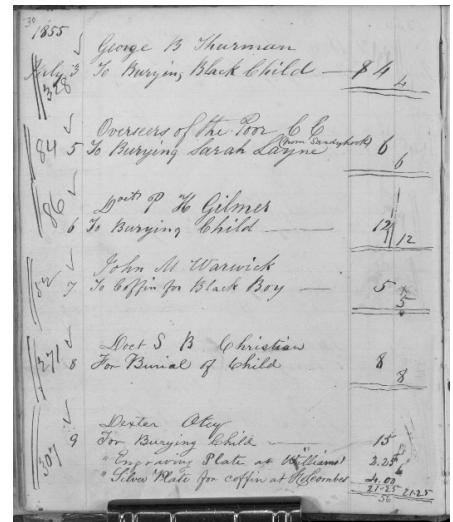 30
1855
George B Thurman
July 3 To Burying Black Child — $ 4
328 4
Overseers of the Poor C C
84 5 To Burying Sarah Layne (from Sandyhook) 6
6
86 Doct P H Gilmer
6 To Burying Child — 12
12
John M Warwick
52 7 To Coffin for Black Boy — 5
5
Doct S B Christian
371 8 For Burial of Child 8
8
Dexter Otey
307 9 For Burying Child — 15
" Engraving Plate at Williams' 2.25
" Silver Plate for coffin at Holcombes 4.00
21-25 21-25
56